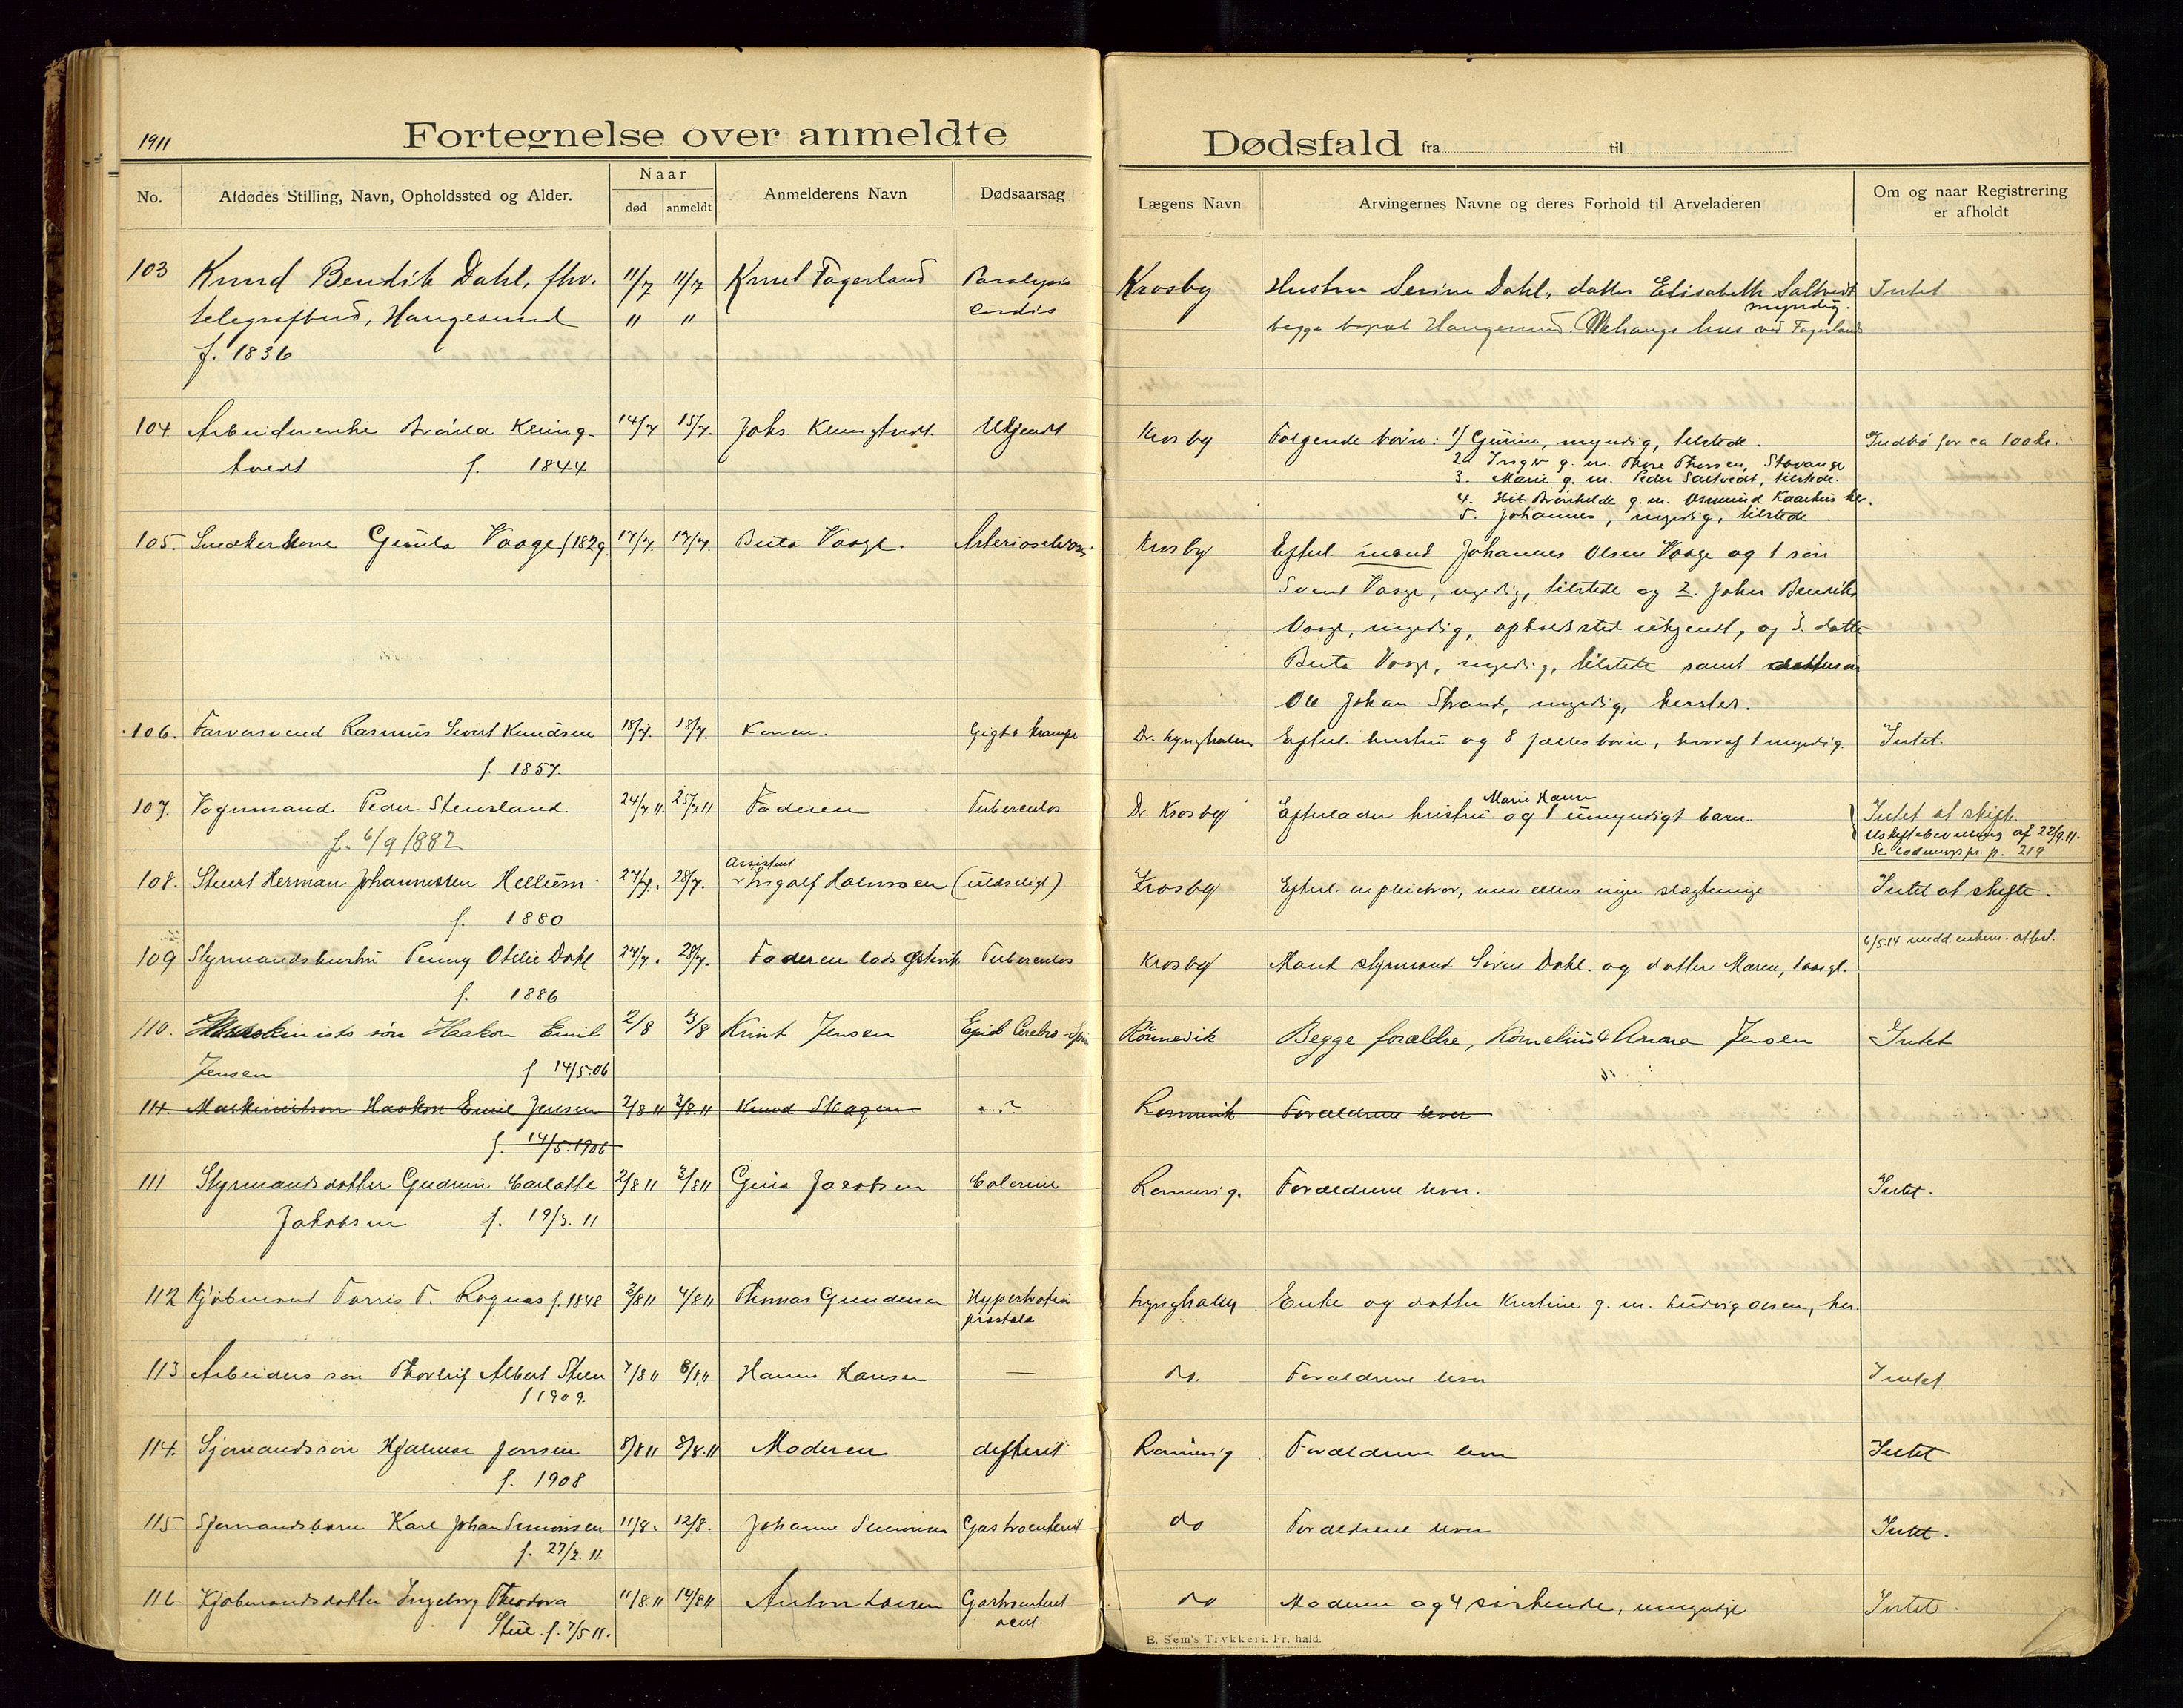 1911
Fortegnelse over anmeldte
Dødsfald fra til
No.
Afdødes Stilling, Navn, Opholdssted og Alder.
Naar
død anmeldt
Anmelderens Navn
Dødsaarsag
Lægens Navn
Arvingernes Navne og deres Forhold til Arveladeren
Om og naar Registrering
er afholdt
103 Knud Bendik Dahl, fhv. 11/7 11/7 Knut Fagerland Paralysis Krosby Hustru Serine Dahl, datter Elisabeth Saltvedt Intet
telegrafbud, Haugesund " " cordis myndig.
begge bopæl Haugesund. hus ved Fagerland
f. 1836
104. Arbeiderenke Brönla Kling- 14/7 15/7. Johs. Klingtvedt. Ukjendt Krosby Følgende børn: 1/ Gurine, myndig, tilstede. Indbo for ca 100 kr.
tvedt f. 1844
2. Inger g. m. Thore Thorsen, Stavanger
3. Marie g. m. Peder Saltvedt, tilstede.
4. Brönhilde g. m. Osmund Kaarhus her.
5. Johannes, myndig, tilstede.
105. Snedkerkone Gunla Vaage f 1829. 17/7. 17/7. Berta Vaage. Arteriosclerosi Krosby Efterl. mand Johannes Olsen Vaage og 1 søn
Svend Vaage, myndig, tilstede og 2. John Bendiks
Vaage, myndig, opholdssted ukjendt, og 3. datter
Berta Vaage, myndig, tilstede samt dattersøn
Ole Johan Strand, myndig, hersteds.
106. Farversvend Rasmus Sivert Knudsen 18/7. 18/7. Konen. Gigt & krampe Dr. Lyngholm Efterl. hustru og 8 fælles børn, hvoraf 1 myndig. Intet.
f. 1857.
107. Vognmand Peder Stensland 24/7.11. 25/7 11 Faderen Tuberculos Dr. Krosby Efterlader hustru Marie Hanne og 1 umyndigt barn. Intet at skifte.
f. 6/9 1882
Uskiftebevilling af 22/9.11.
p. 219
108. Stuert Herman Johannessen Hellum 27/7. 28/7. Assistent Ingolf Halvorsen (ulæseligt) Krosby Efterl. en pleiebror, men ellers ingen slægtninge Intet at skifte.
f. 1880
6/5.14
109 Styrmandshustru Penny Otilie Dahl 27/7. 28/7. Faderen lods Gjstevik Tuberculos Krosby Mand styrmand Sören Dahl. og datter Maren, 1 aar gl.
f. 1886
110. Maskinists søn Haakon Emil 2/8 3/8 Knut Jensen Epid Cerebro-Spin Rönnevik Begge forældre, Kornelius & Anna Jensen Intet
Jensen f 14/5.06
111. Maskinistsøn Haakon Emil Jensen 2/8 11 3/8.11 Knud Skagen ...? Rönnevik Forældrene lever
f. 14/5.1906
111 Styrmandsdatter Gudrun Carlotte 2/8 11 3/8 11 Gina Jacobsen Colerine Rønnevig. Forældrene lever. Intet.
Jakobsen f. 19/3. 11
112 Kjøbmand Torris T. Rognas f. 1848 3/8 11 4/8 11 Thomas Gundersen Hypertrofia Lyngholm Enke og datter Kristine g. m. Ludvig Olsen, her.
prostata
113 Arbeiders søn Thorleif Albert Steen 7/8 11 8/8 11 Hanna Hansen — do. Forældrene lever Intet.
f 1909.
114. Sjømandssøn Hjalmar Jensen 8/8 11 8/8.11 Moderen difterit Rønnevig Forældrene lever Intet
f. 1908
115 Sjømandsbarn Karl Johan Simonsen 11/8. 12/8. Johanne Simonsen Gastroenterit do Forældrene lever Intet.
f. 27/2. 11.
116 Kjøbmandsdatter Ingeborg Theodora 11/8.11 14/8 11 Anton Larsen Gastroenterit do Moderen og 4 søskende, umyndige Intet.
Stue. f. 7/5 11. acut.
E. Sem's Trykkeri. Fr. hald.